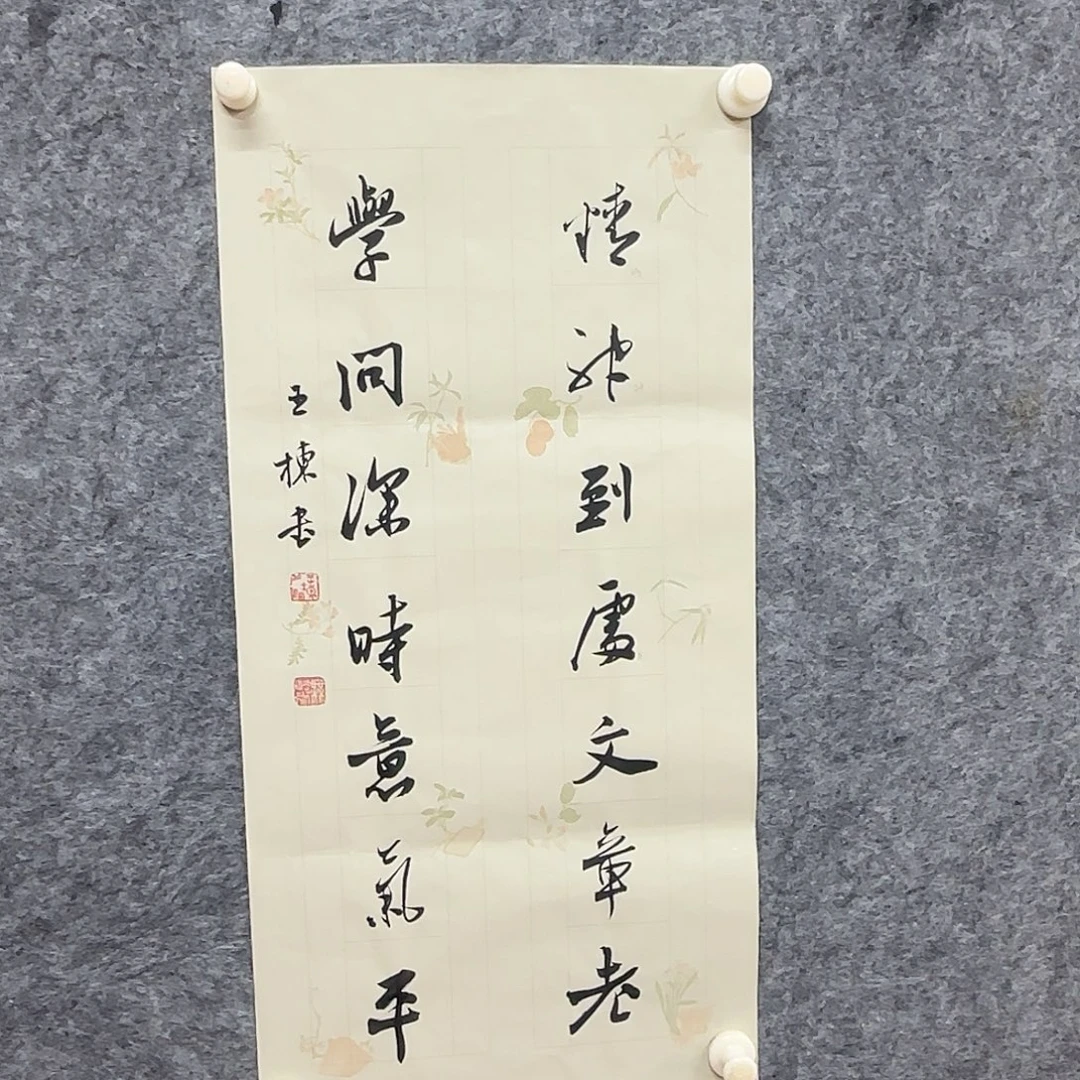 精神到處文章老
學問深時意氣平
王棟書